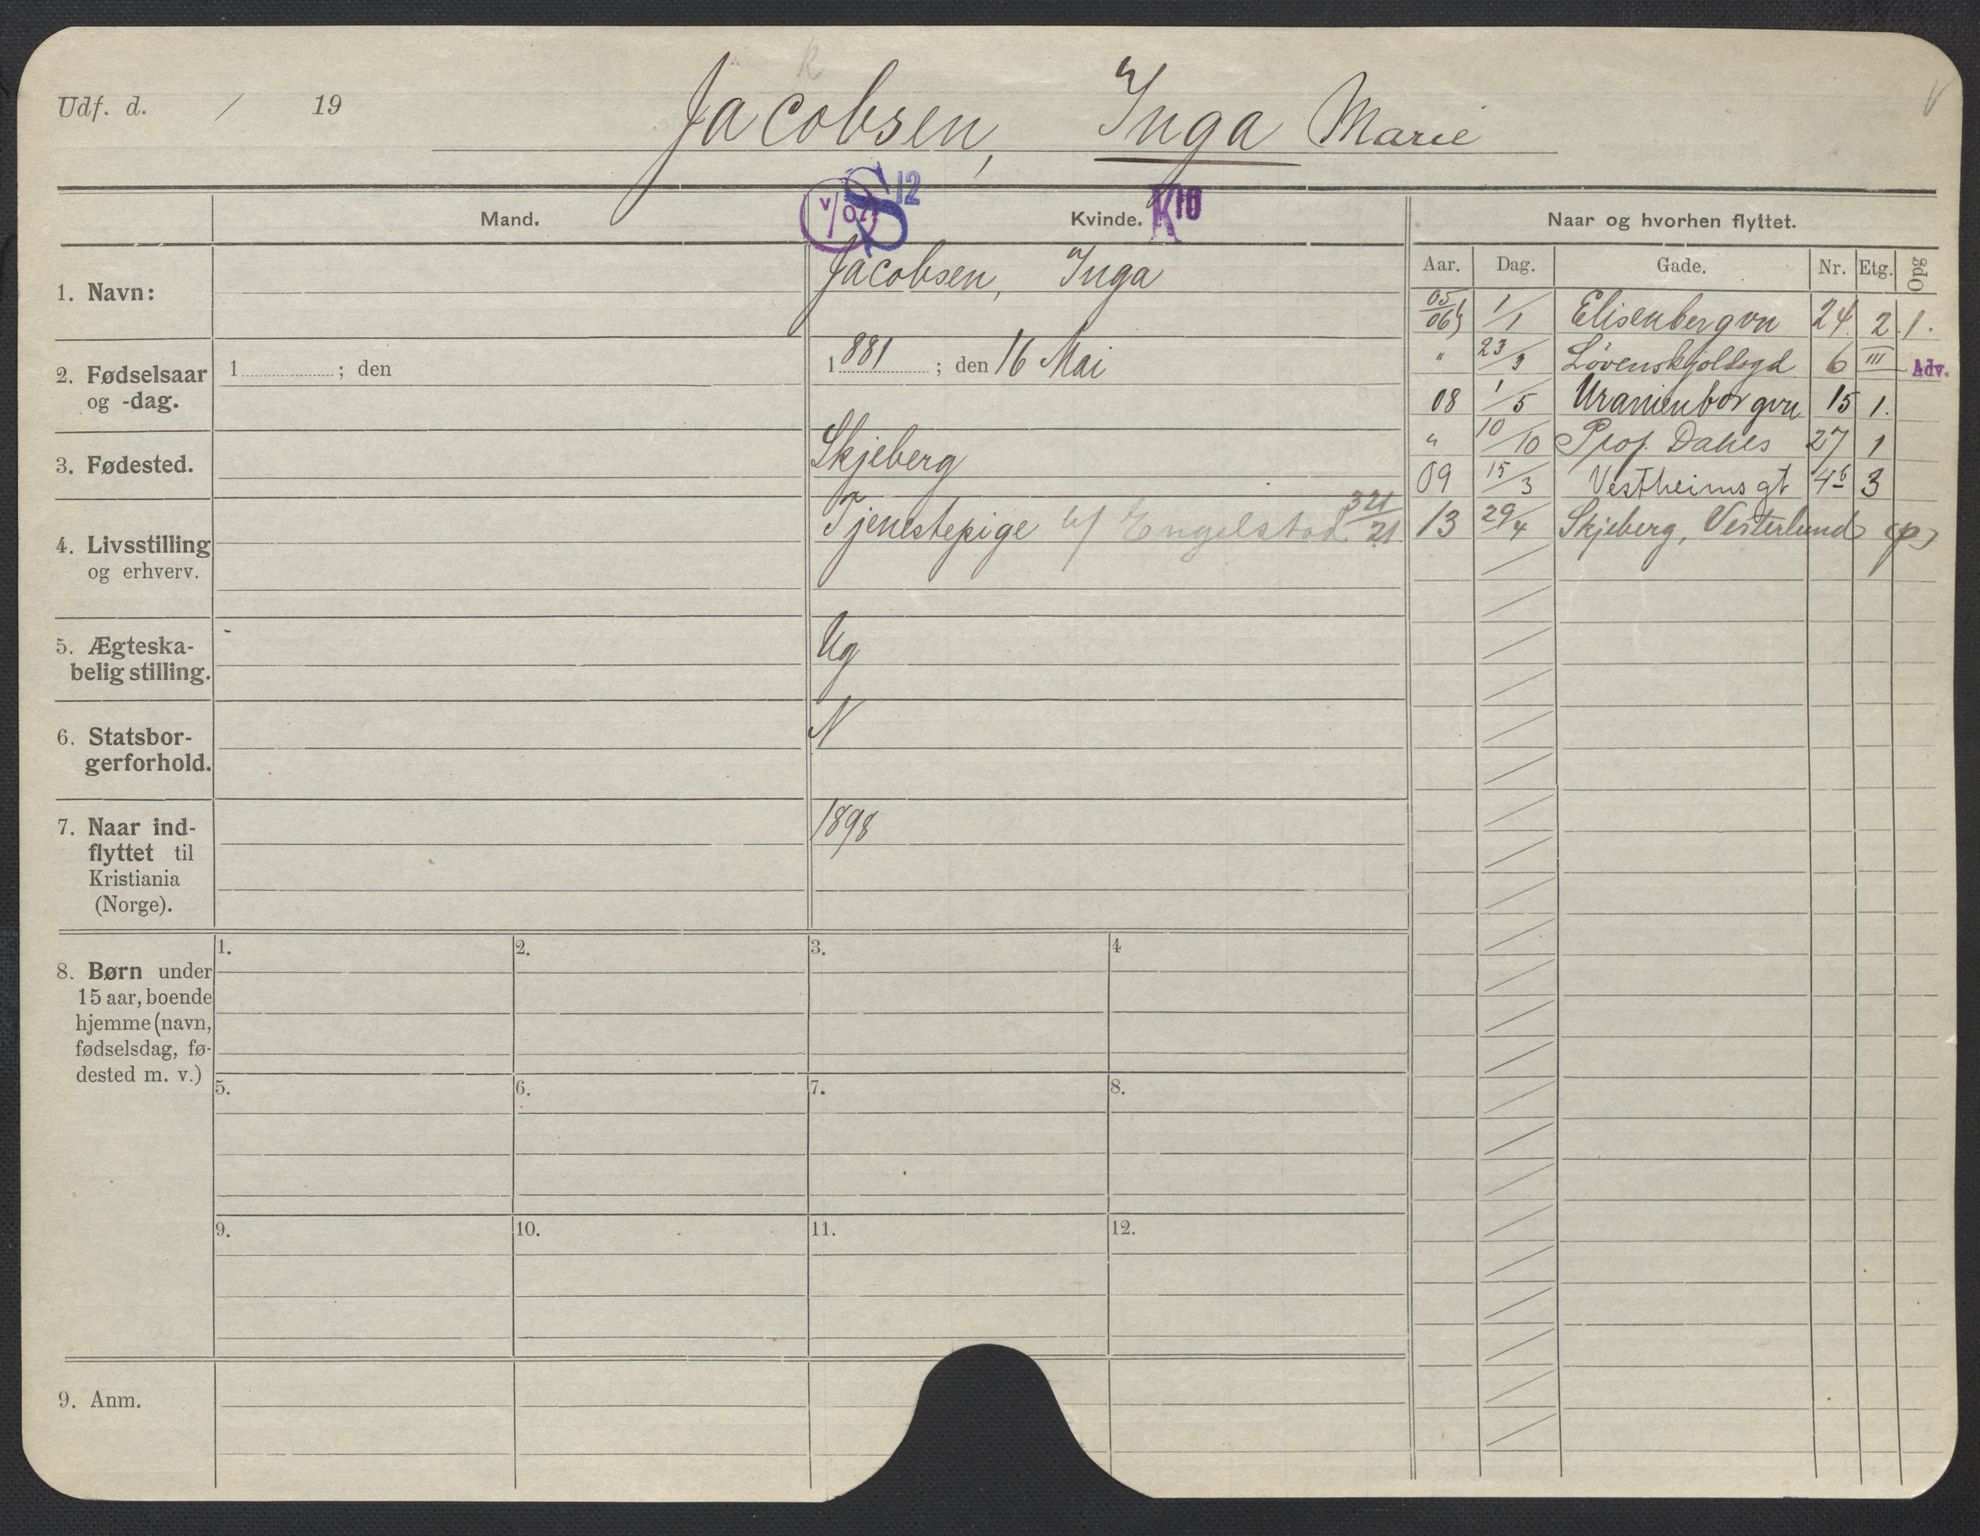 Udf. d. / 19
Jacobsen, Inga Marie
Mand.
Kvinde.
Naar og hvorhen flyttet.
V/07 S12
K10
Aar. Dag. Gade. Nr. Etg. Opg
1. Navn:
Jacobsen, Inga
05/06 1/1 Elisenbergvn 24 2 1.
2. Fødselsaar
og -dag.
1 ; den
1881 ; den 16 Mai
" 23/3 Løvenskjoldsgd 6 III Adv.
08 1/5 Uranienborgvn 15 1.
3. Fødested.
Skjeberg
" 10/10 Prof. Dahls 27 1
09 15/3 Vestheimsgt 4b 3
4. Livsstilling
og erhverv.
Tjenestepige h/ Engelstad 321/21
13 29/4 Skjeberg, Vesterlund (p)
5. Ægteska-
belig stilling.
Ug
6. Statsbor-
gerforhold.
N
7. Naar ind-
flyttet til
Kristiania
(Norge).
1898
8. Børn under
15 aar, boende
hjemme (navn,
fødselsdag, fø-
dested m. v.)
1. 2. 3. 4
5. 6. 7. 8.
9. 10. 11. 12.
9. Anm.